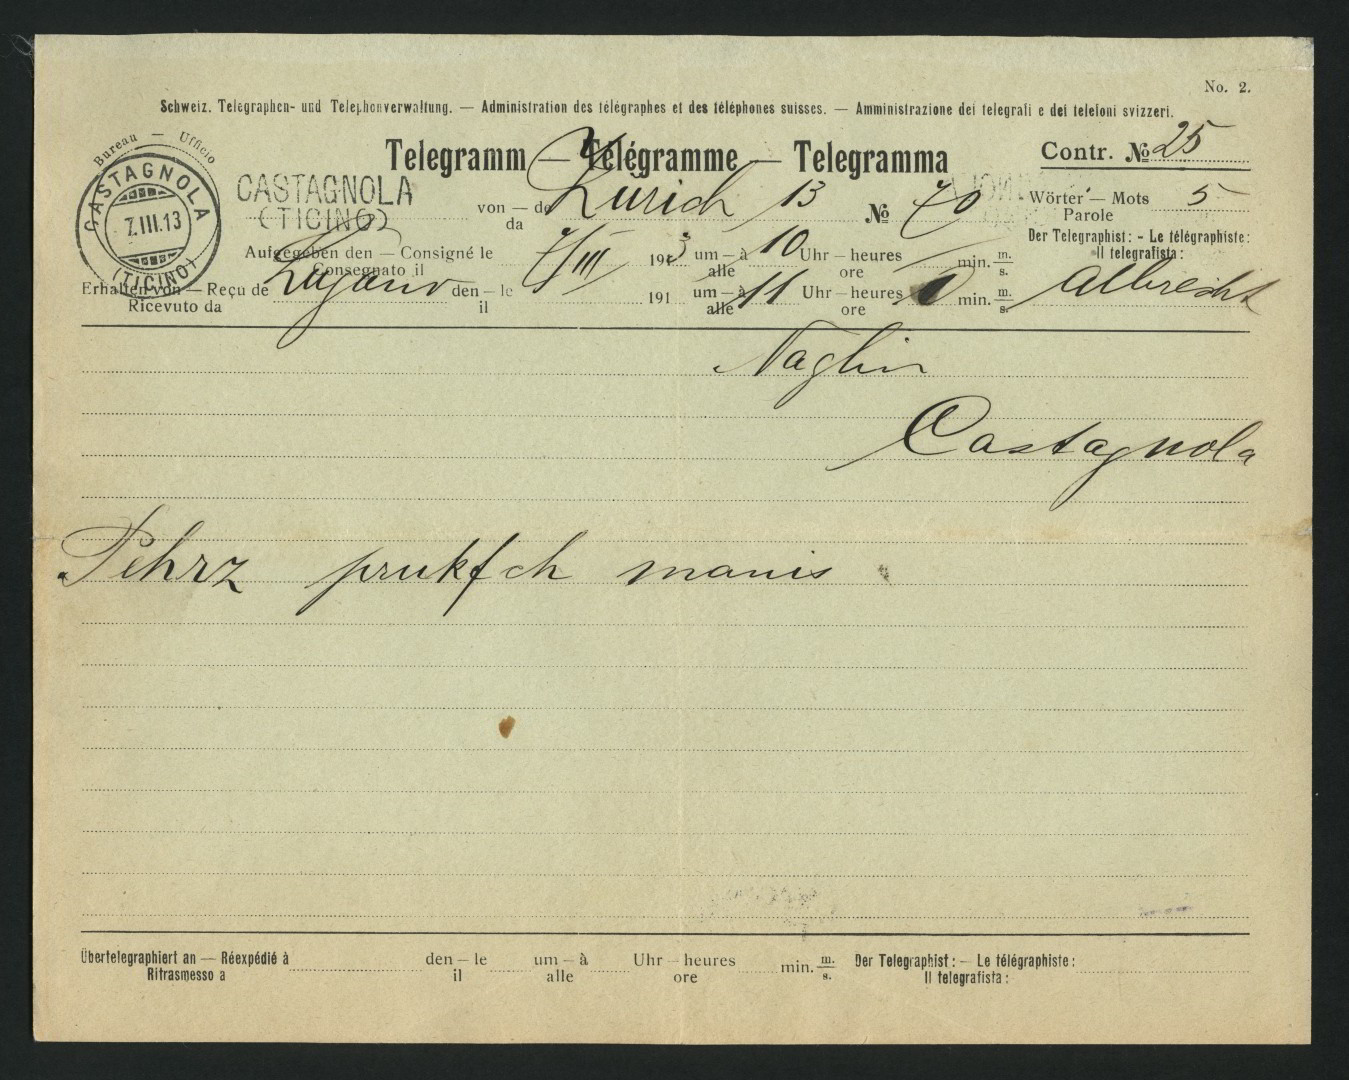 No. 2.
Schweiz. Telegraphen- und Telephonverwaltung. — Administration des télégraphes et des téléphones suisses. — Amministrazione dei telegrafi e dei telefoni svizzeri.
Bureau — Ufficio
CASTAGNOLA
7.III.13
(TICINO)
Telegramm — Télégramme — Telegramma
Contr. № 25
CASTAGNOLA
(TICINO)
von — de
da
Zürich 13 № 70
Wörter — Mots
Parole
5
Aufgegeben den — Consigné le
Consegnato il
7/III 1913 um — à
alle
10 Uhr — heures
ore
min. m.
s.
Der Telegraphist: - Le télégraphiste:
Il telegrafista:
Erhalten von — Reçu de
Ricevuto da
Lugano den — le
il
191 um — à
alle
11 Uhr — heures
ore
min. m.
s.
Albrecht
Castagnola
Pehrz prukfch manis
Übertelegraphiert an — Réexpédié à
Ritrasmesso a
den — le
il
um — à
alle
Uhr — heures
ore
min. m.
s.
Der Telegraphist: — Le télégraphiste:
Il telegrafista: